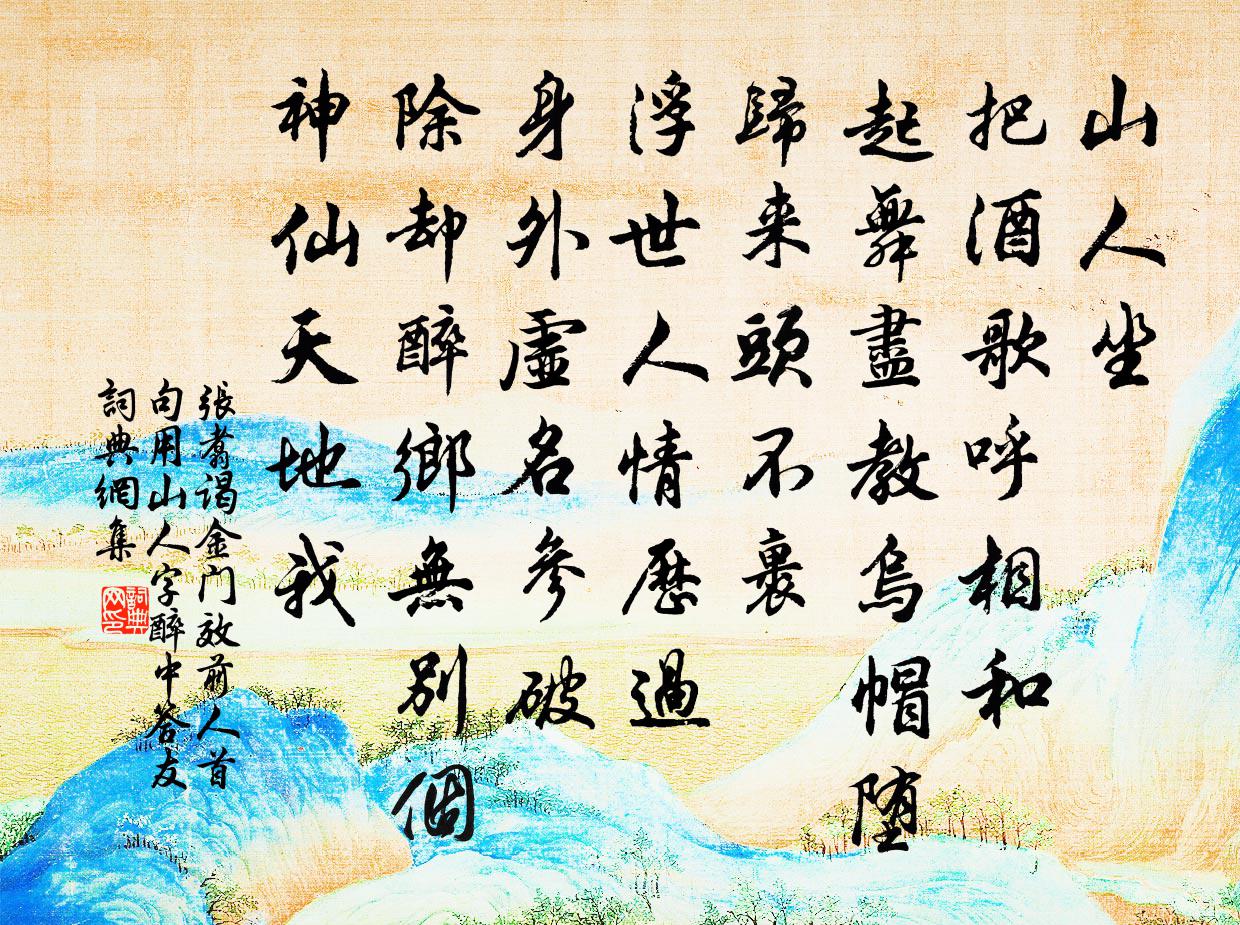 山人坐
把酒歌呼相和
起舞盡教烏帽堕
歸来頭不裹
浮世人情歷過
身外虛名參破
除却醉鄉無別個
神仙天地我
張翥谒金门效前人首
句用山人字醉中答友
詞典網集
詞典
网印